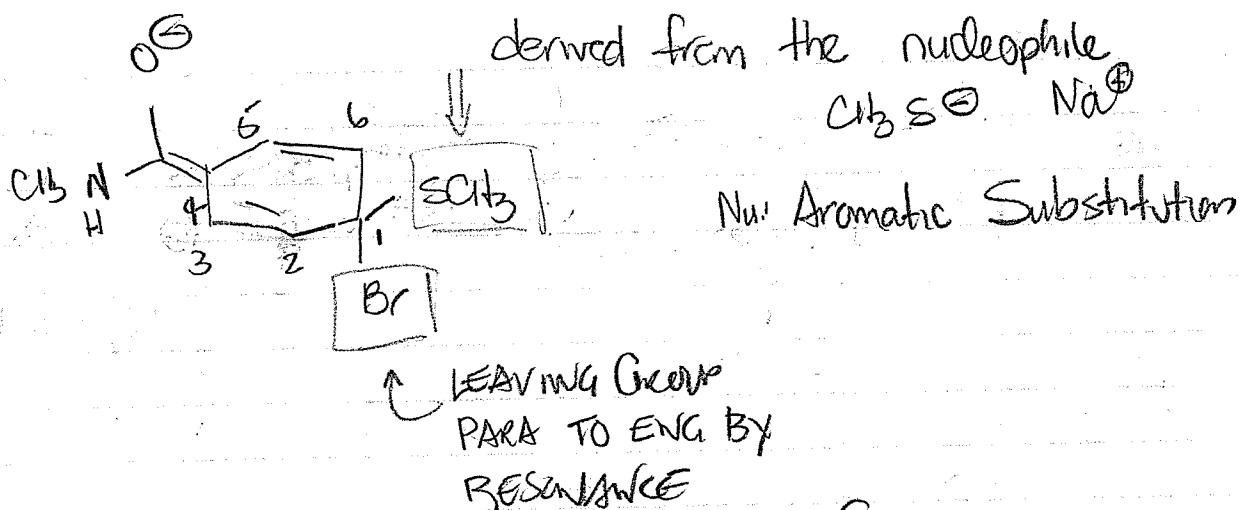 O⊖
derived from the nucleophile
CH3 S⊖ Na⊕
5 6
CH3 N
H
SCH3
Nu: Aromatic Substitution
4
1
3 2
Br
LEAVING GROUP
PARA TO ENG BY
RESONANCE